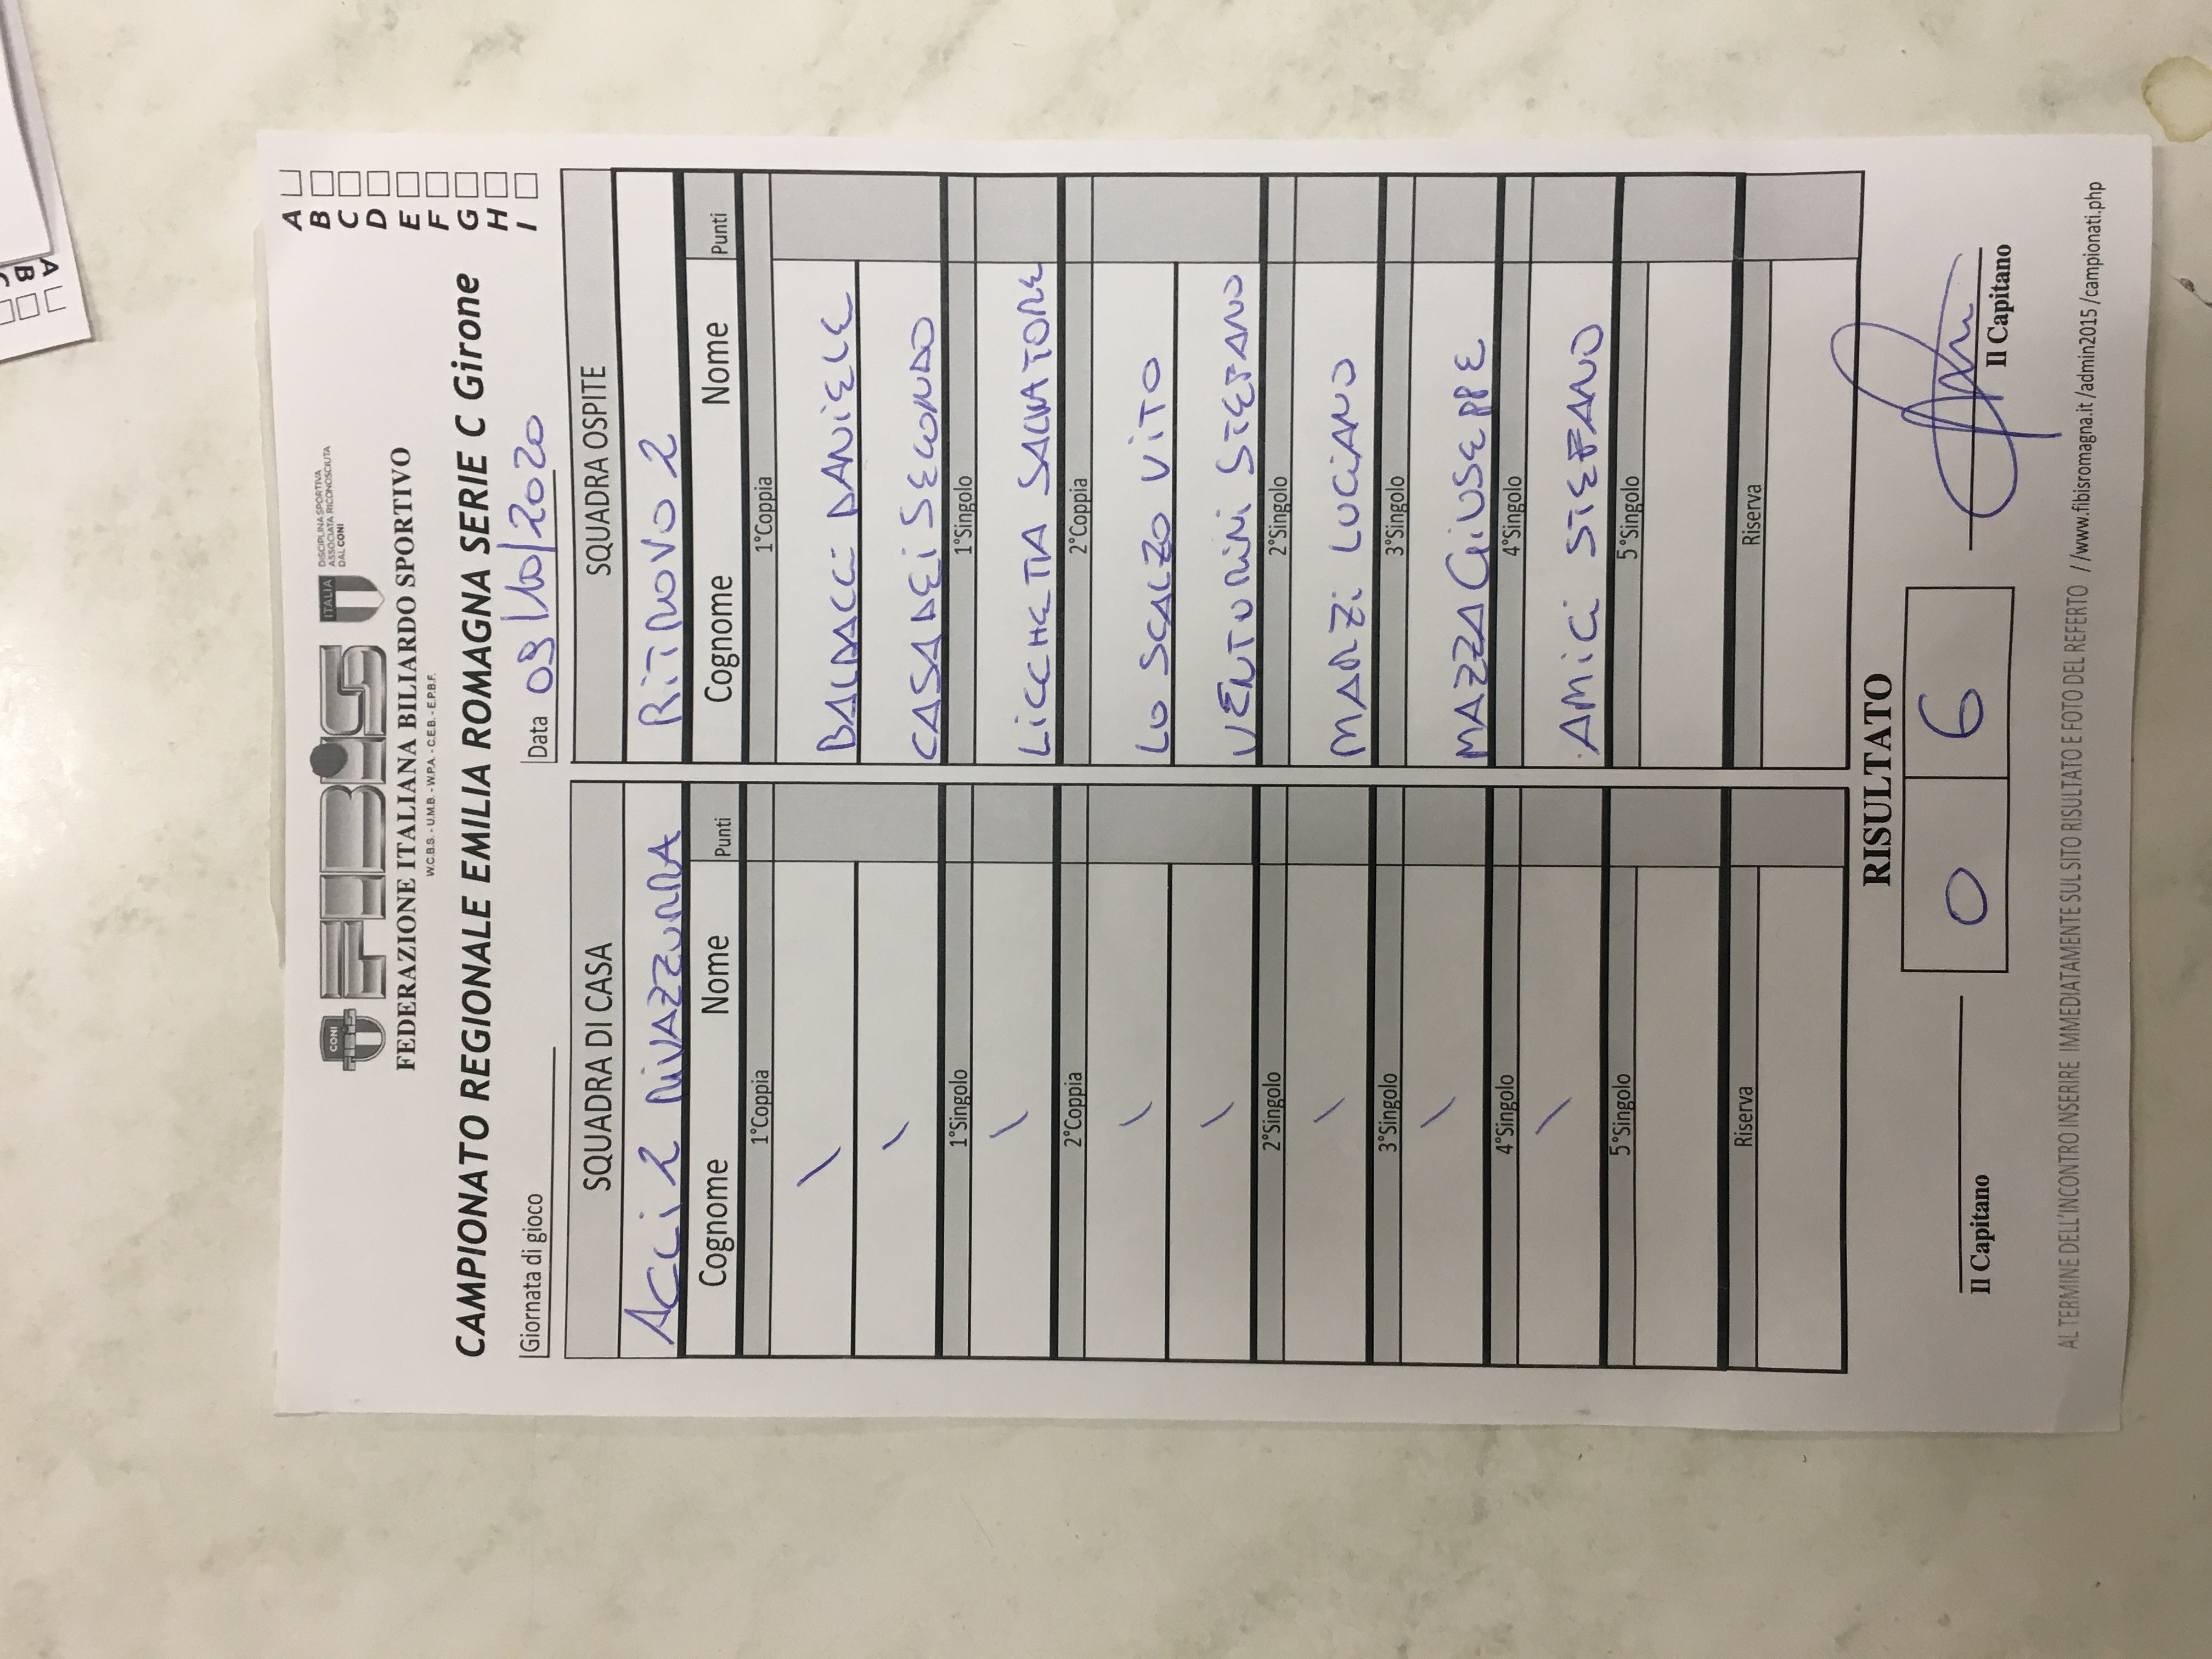 CONI
FIBIS
ITALIA
DISCIPLINA SPORTIVA
ASSOCIATA RICONOSCIUTA
DAL CONI
FEDERAZIONE ITALIANA BILIARDO SPORTIVO
W.C.B.S. - U.M.B. - W.P.A. - C.E.B. - E.P.B.F.
CAMPIONATO REGIONALE EMILIA ROMAGNA SERIE C Girone
A
B
C
D
E
F
G
H
I
Giornata di gioco
Data 09/10/2020
SQUADRA DI CASA
ACLI 2 RIVAZZURRA
Cognome Nome Punti
1°Coppia
\
\
1°Singolo
\
2°Coppia
\
\
2°Singolo
\
3°Singolo
\
4°Singolo
\
5°Singolo
Riserva
SQUADRA OSPITE
RITROVO 2
Cognome Nome Punti
1°Coppia
BALDACCI DANIELE
CASADEI SECONDO
1°Singolo
LICCHETTA SALVATORE
2°Coppia
LO SCALZO VITO
VENTURINI STEFANO
2°Singolo
MARZI LUCIANO
3°Singolo
MAZZA GIUSEPPE
4°Singolo
AMICI STEFANO
5°Singolo
Riserva
RISULTATO
0 6
Il Capitano
Il Capitano
AL TERMINE DELL'INCONTRO INSERIRE IMMEDIATAMENTE SUL SITO RISULTATO E FOTO DEL REFERTO //www.fibisromagna.it /admin2015 /campionati.php
A
B